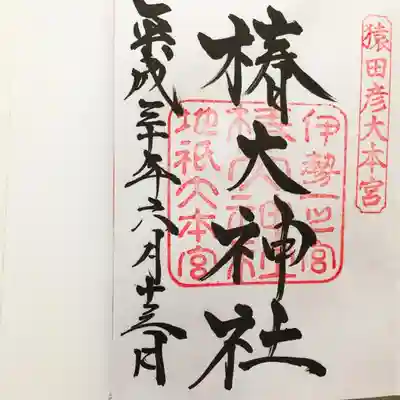 猿田彦大本宮
伊勢一之宮
椿大神社
地祇大本宮
平成三十年六月十三日